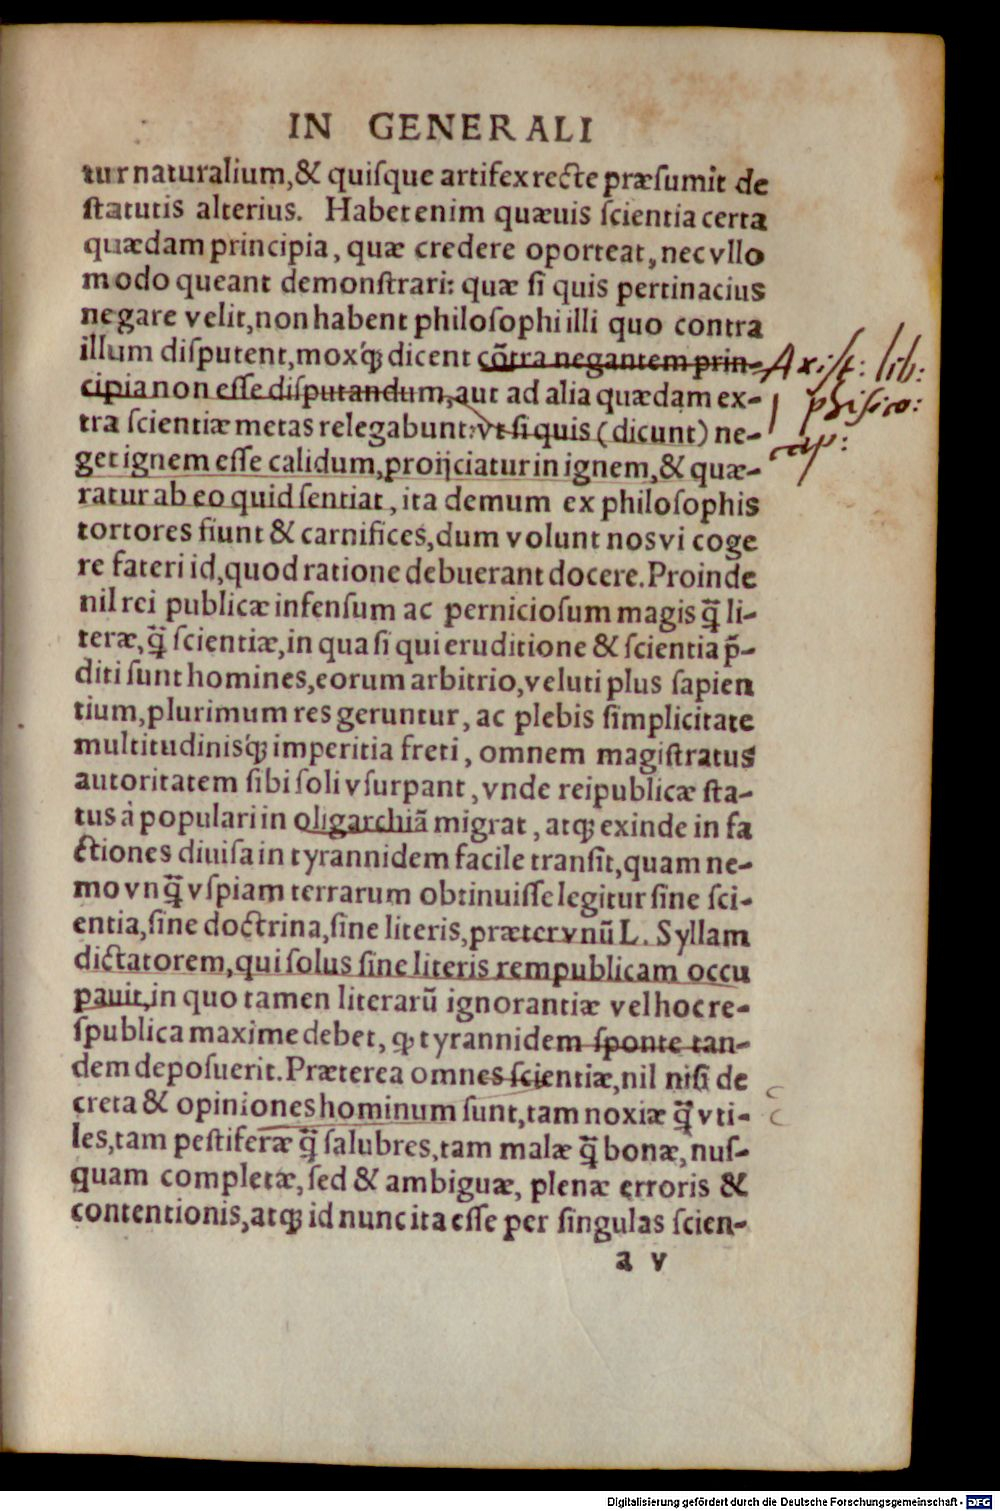 IN GENERALI
tur naturalium,& quisque artifex recte præsumit de
statutis alterius. Habet enim quæuis scientia certa
quædam principia, quæ credere oporteat, nec vllo
modo queant demonstrari: quæ si quis pertinacius
negare velit, non habent philosophi illi quo contra
illum disputent, moxq́; dicent cōtra negantem prin-
cipia non esse disputandum, aut ad alia quædam ex-
tra scientiæ metas relegabunt: vt si quis (dicunt) ne-
get ignem esse calidum, proijciatur in ignem,& quæ-
ratur ab eo quid sentiat, ita demum ex philosophis
tortores fiunt & carnifices, dum volunt nos vi coge
re fateri id, quod ratione debuerant docere. Proinde
nil rei publicæ infensum ac perniciosum magis q̃ li-
teræ, q̃ scientiæ, in qua si qui eruditione & scientia p̃-
diti sunt homines, eorum arbitrio, veluti plus sapien
tium, plurimum res geruntur, ac plebis simplicitate
multitudinisq́; imperitia freti, omnem magistratus
autoritatem sibi soli vsurpant, vnde reipublicæ sta-
tus à populari in oligarchiã migrat, atq; exinde in fa
ctiones diuisa in tyrannidem facile transit, quam ne-
mo vnq̃ vspiam terrarum obtinuisse legitur sine sci-
entia, sine doctrina, sine literis, præter vnũ L. Syllam
dictatorem, qui solus sine literis rempublicam occu
pauit, in quo tamen literarũ ignorantiæ vel hoc re-
spublica maxime debet, ꝙ tyrannidem sponte tan-
dem deposuerit. Præterea omnes scientiæ, nil nisi de
creta & opiniones hominum sunt, tam noxiæ q̃ vti-
les, tam pestiferæ q̃ salubres, tam malæ q̃ bonæ, nus-
quam completæ, sed & ambiguæ, plenæ erroris &
contentionis, atq; id nunc ita esse per singulas scien-
a v
Arist: lib:
1 phisico:
cap:
Digitalisierung gefördert durch die Deutsche Forschungsgemeinschaft - DFG